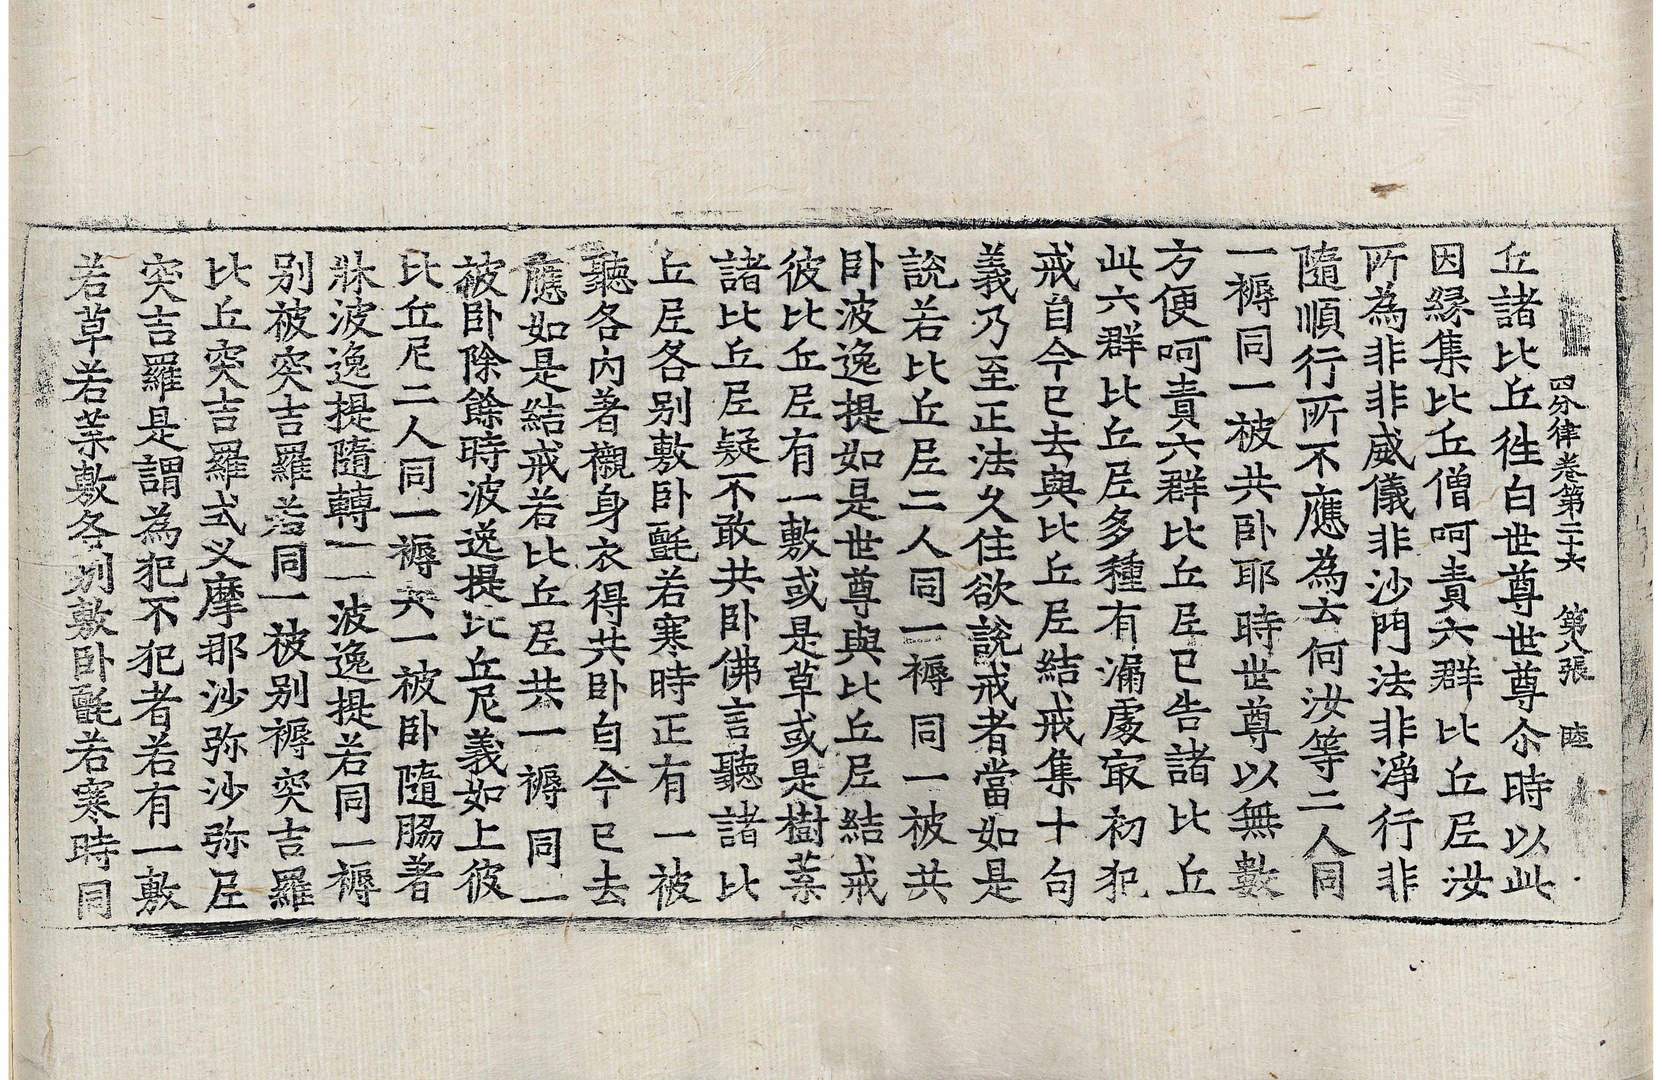 四分律卷第二十六 第八張 睦
丘諸比丘徃白世尊世尊尒時以此
因緣集比丘僧呵責六群比丘尼汝
所為非非威儀非沙門法非淨行非
隨順行所不應為云何汝等二人同
一褥同一被共卧耶時世尊以無數
方便呵責六群比丘尼已告諸比丘
此六群比丘尼多種有漏處冣初犯
戒自今已去與比丘尼結戒集十句
義乃至正法久住欲說戒者當如是
說若比丘尼二人同一褥同一被共
卧波逸提如是世尊與比丘尼結戒
彼比丘尼有一敷或是草或是樹葉
諸比丘尼疑不敢共卧佛言聽諸比
丘尼各別敷卧氈若寒時正有一被
聽各內著襯身衣得共卧自今已去
應如是結戒若比丘尼共一褥同一
被卧除餘時波逸提比丘尼義如上彼
比丘尼二人同一褥共一被卧隨脇著
牀波逸提隨轉一一波逸提若同一褥
別被突吉羅若同一被別褥突吉羅
比丘突吉羅式叉摩那沙弥沙弥尼
突吉羅是謂為犯不犯者若有一敷
若草若葉敷各別敷卧氈若寒時同